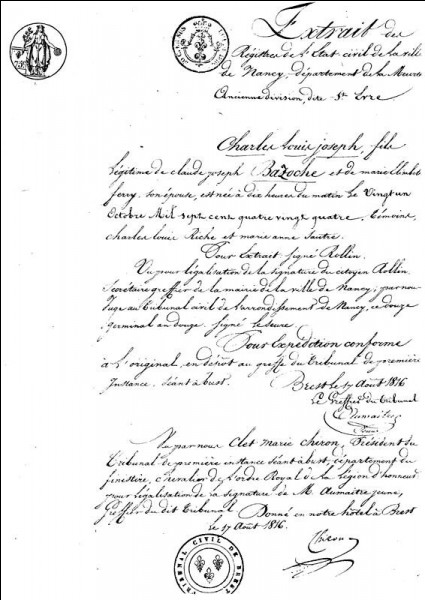 Extrait des
Régistres de l'Etat civil de la ville
de Nancy, département de la Meurte
Ancienne division, dite St Epvre
Charles Louis joseph, fils
légitime de claude joseph Bazoche et de marie Elisabeth
ferry, son épouse, est né à dix heures du matin le vingt un
Octobre Mil sept cent quatre vingt quatre, témoins,
charles Louis Riche et marie anne
Pour Extrait signé Rollin.
Vu pour légalisation de la signature du citoyen Rollin,
Secrétaire greffier de la mairie de la ville de Nancy, par nous
Juge au Tribunal civil de l'arrondissement de Nancy, ce douze
germinal an douze. signé
Pour Expédition conforme
à L'original, en dépôt au greffe du Tribunal de première
Instance, séant à brest.
Brest le 17 Aout 1816
Le Greffier du Tribunal
Vu par nous Clet marie chiron, Président du
Tribunal de première instance séant à brest, département du
finistère, chevalier de l'ordre Royal de la Légion d'honneur
pour légalisation de la signature de M. Aumaitre jeune,
Greffier du dit Tribunal. Donné en notre hôtel à Brest
le 17 Aout 1816.
Chiron
TRIBUNAL CIVIL DE BREST